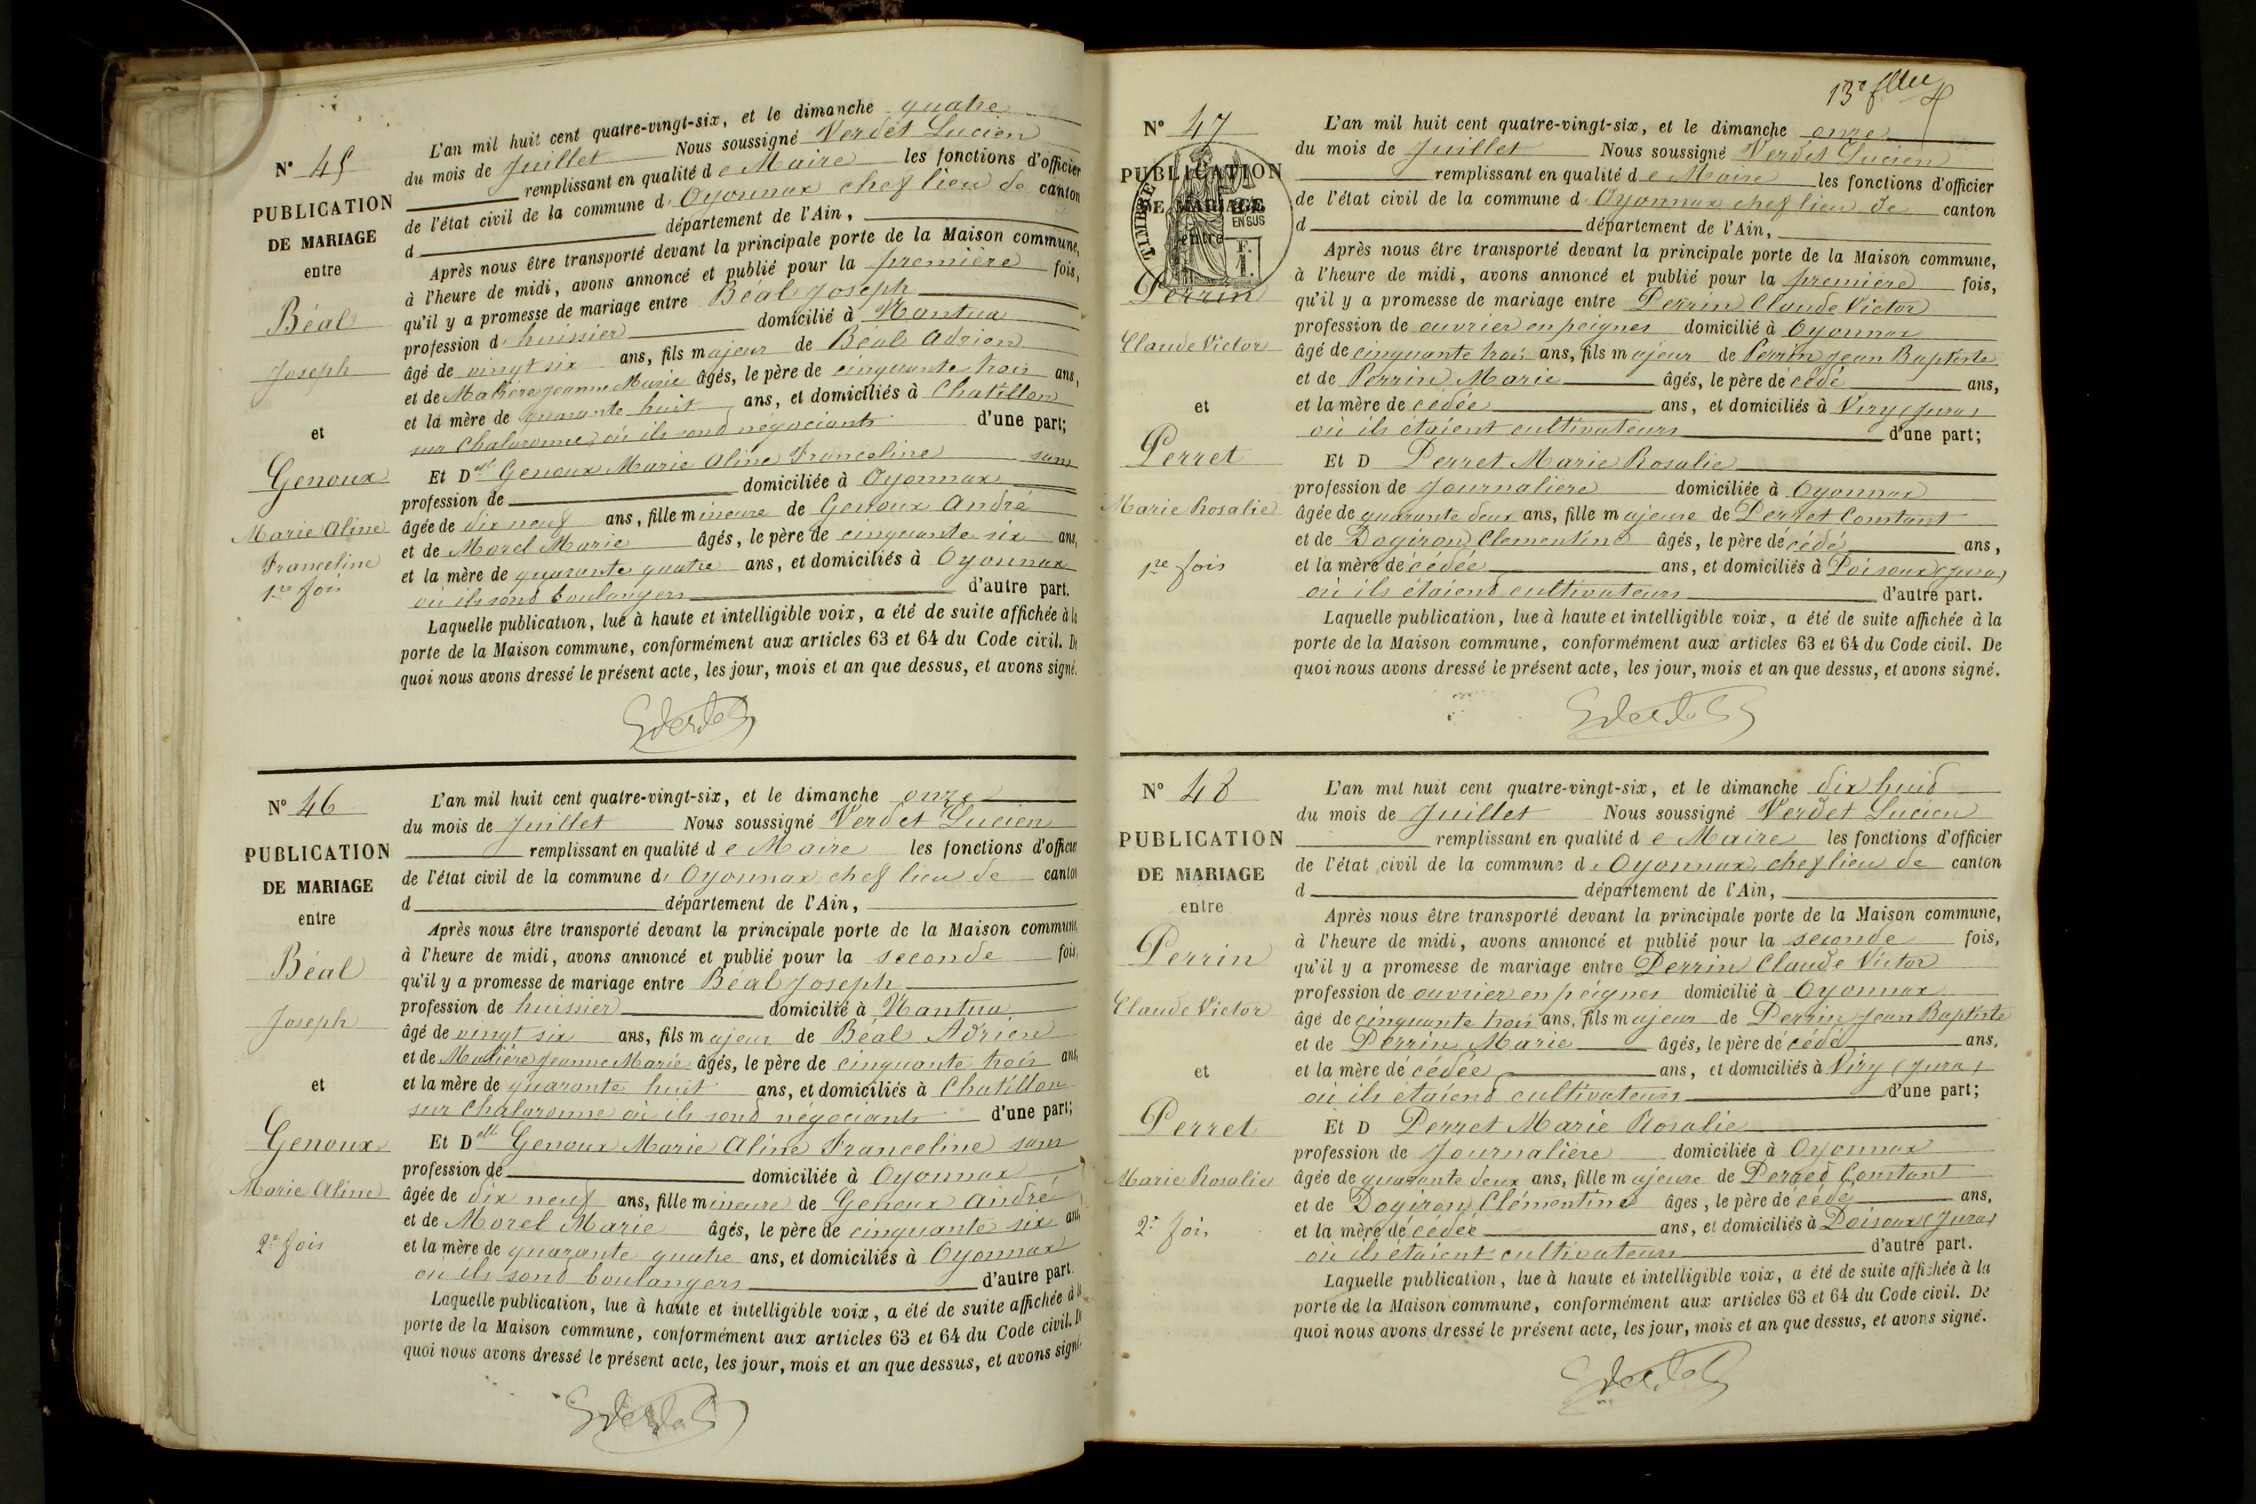 N° 45
PUBLICATION
DE MARIAGE
entre
Béal
Joseph
et
Genoux
Marie Aline
Franceline
1re fois
L'an mil huit cent quatre-vingt-six, et le dimanche quatre
du mois de Juillet Nous soussigné Verdet Lucien
remplissant en qualité de Maire les fonctions d'officier
de l'état civil de la commune d'Oyonnax chef lieu de canton
d département de l'Ain,
Après nous être transporté devant la principale porte de la Maison commune,
à l'heure de midi, avons annoncé et publié pour la première fois,
qu'il y a promesse de mariage entre Béal Joseph
profession d'huissier domicilié à Nantua
âgé de vingt six ans, fils majeur de Béal Adrien
et de Molière Jeanne Marie âgés, le père de cinquante trois ans,
et la mère de quarante huit ans, et domiciliés à Chatillon
sur Chalaronne où ils sont négociants d'une part;
Et Delle Genoux Marie Aline Franceline sans
profession de domiciliée à Oyonnax
âgée de dix neuf ans, fille mineure de Genoux André
et de Morel Marie âgés, le père de cinquante six ans,
et la mère de quarante quatre ans, et domiciliés à Oyonnax
où ils sont boulangers d'autre part.
Laquelle publication, lue à haute et intelligible voix, a été de suite affichée à la
porte de la Maison commune, conformément aux articles 63 et 64 du Code civil. De
quoi nous avons dressé le présent acte, les jour, mois et an que dessus, et avons signé.
N° 46
PUBLICATION
DE MARIAGE
entre
Béal
Joseph
et
Genoux
Marie Aline
2e fois
L'an mil huit cent quatre-vingt-six, et le dimanche onze
du mois de Juillet Nous soussigné Verdet Lucien
remplissant en qualité de Maire les fonctions d'officier
de l'état civil de la commune d'Oyonnax chef lieu de canton
d département de l'Ain,
Après nous être transporté devant la principale porte de la Maison commune,
à l'heure de midi, avons annoncé et publié pour la seconde fois,
qu'il y a promesse de mariage entre Béal Joseph
profession de huissier domicilié à Nantua
âgé de vingt six ans, fils majeur de Béal Adrien
et de Molière Jeanne Marie âgés, le père de cinquante trois ans,
et la mère de quarante huit ans, et domiciliés à Chatillon
sur Chalaronne où ils sont négociants d'une part;
Et Delle Genoux Marie Aline Franceline sans
profession de domiciliée à Oyonnax
âgée de dix neuf ans, fille mineure de Genoux André
et de Morel Marie âgés, le père de cinquante six ans,
et la mère de quarante quatre ans, et domiciliés à Oyonnax
où ils sont boulangers d'autre part.
Laquelle publication, lue à haute et intelligible voix, a été de suite affichée à la
porte de la Maison commune, conformément aux articles 63 et 64 du Code civil. De
quoi nous avons dressé le présent acte, les jour, mois et an que dessus, et avons signé.
13e
N° 47
PUBLICATION
DE MARIAGE
entre
TIMBRE
EN SUS
F.
1.
Perrin
Claude Victor
et
Perret
Marie Rosalie
1re fois
L'an mil huit cent quatre-vingt-six, et le dimanche onze
du mois de Juillet Nous soussigné Verdet Lucien
remplissant en qualité de Maire les fonctions d'officier
de l'état civil de la commune d'Oyonnax chef lieu de canton
d département de l'Ain,
Après nous être transporté devant la principale porte de la Maison commune,
à l'heure de midi, avons annoncé et publié pour la première fois,
qu'il y a promesse de mariage entre Perrin Claude Victor
profession de ouvrier en peignes domicilié à Oyonnax
âgé de cinquante trois ans, fils majeur de Perrin Jean Baptiste
et de Perrin Marie âgés, le père décédé ans,
et la mère de cédée ans, et domiciliés à Viry (Jura)
où ils étaient cultivateurs d'une part;
Et D Perret Marie Rosalie
profession de journalière domiciliée à Oyonnax
âgée de quarante deux ans, fille majeure de Perret Constant
et de Dagiron Clementine âgés, le père décédé ans,
et la mère décédée ans, et domiciliés à Poisoux (Jura)
où ils étaient cultivateurs d'autre part.
Laquelle publication, lue à haute et intelligible voix, a été de suite affichée à la
porte de la Maison commune, conformément aux articles 63 et 64 du Code civil. De
quoi nous avons dressé le présent acte, les jour, mois et an que dessus, et avons signé.
N° 48
PUBLICATION
DE MARIAGE
entre
Perrin
Claude Victor
et
Perret
Marie Rosalie
2e fois
L'an mil huit cent quatre-vingt-six, et le dimanche dix huit
du mois de Juillet Nous soussigné Verdet Lucien
remplissant en qualité de Maire les fonctions d'officier
de l'état civil de la commune d'Oyonnax, chef lieu de canton
d département de l'Ain,
Après nous être transporté devant la principale porte de la Maison commune,
à l'heure de midi, avons annoncé et publié pour la seconde fois,
qu'il y a promesse de mariage entre Perrin Claude Victor
profession de ouvrier en peignes domicilié à Oyonnax
âgé de cinquante trois ans, fils majeur de Perrin Jean Baptiste
et de Perrin Marie âgés, le père décédé ans,
et la mère décédée ans, et domiciliés à Viry (Jura)
où ils étaient cultivateurs d'une part;
Et D Perret Marie Rosalie
profession de Journalière domiciliée à Oyonnax
âgée de quarante deux ans, fille majeure de Perret Constant
et de Dagiron Clémentine âgés, le père décédé ans,
et la mère décédée ans, et domiciliés à Poisoux (Jura)
où ils étaient cultivateurs d'autre part.
Laquelle publication, lue à haute et intelligible voix, a été de suite affichée à la
porte de la Maison commune, conformément aux articles 63 et 64 du Code civil. De
quoi nous avons dressé le présent acte, les jour, mois et an que dessus, et avons signé.